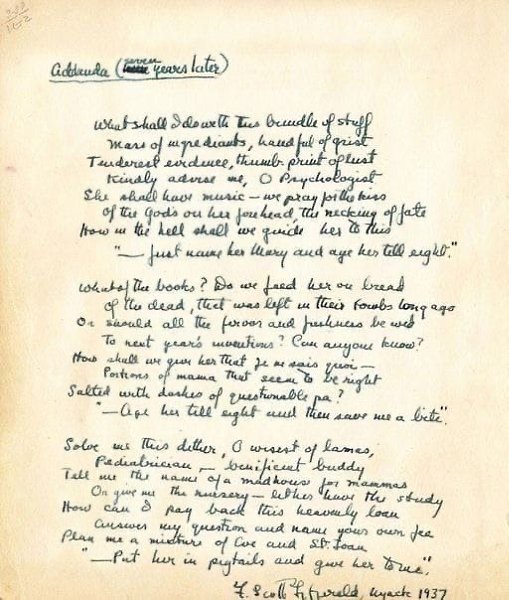 Addenda (seven years later)
What shall I do with this bundle of stuff
Mass of ingredients, handful of grist
Tenderest evidence, thumb-print of lust
Kindly advise me, O Psychologist
She shall have music — we pray for the kiss
Of the Gods on her forehead, the necking of fate
How in the hell shall we guide her to this
"— Just name her Mary and age her till eight."
What of the books? Do we feed her on bread
of the dead, that was left in their tombs long ago
Or should all the fervor and freshness be wed
To next year's inventions? Can anyone know?
How shall we give her that je ne sais quoi —
Portions of mama that seem to be right
Salted with dashes of questionable pa?
"— Age her till eight and then save me a bite".
Solve me this dither, O wisest of lamas,
Pediatrician — benificent buddy
Tell me the name of a madhouse for mammas
Or give me the nursery — let her have the study
How can I pay back this heavenly loan
Answer my question and name your own fee
Plan me a mixture of Eve and St. Joan
"— Put her in pigtails and give her to me".
F. Scott Fitzgerald, Nyack 1937